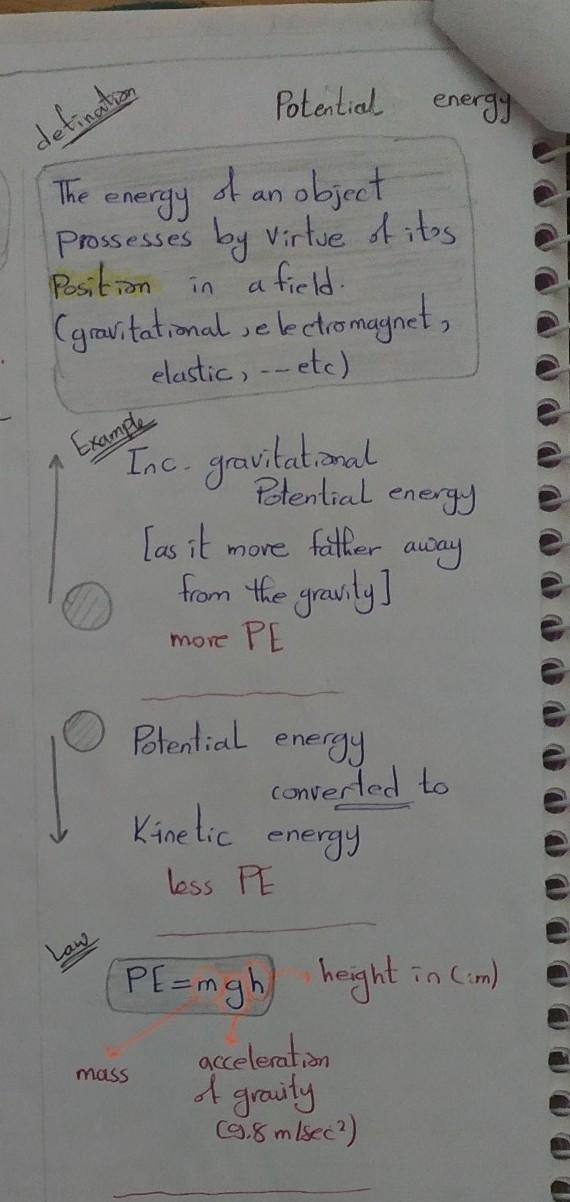 defination
Potential energy
The energy of an object
Prossesses by virtue of itos
Position in a field.
(gravitational, electromagnet,
elastic, --- etc)
Example
Inc. gravitational
Potential energy
[as it more father away
from the gravity]
more PE
Potential energy
converted to
Kinetic energy
less PE
Law
PE=mgh
height in (m)
mass
acceleration
of gravity
(9.8 m/sec²)